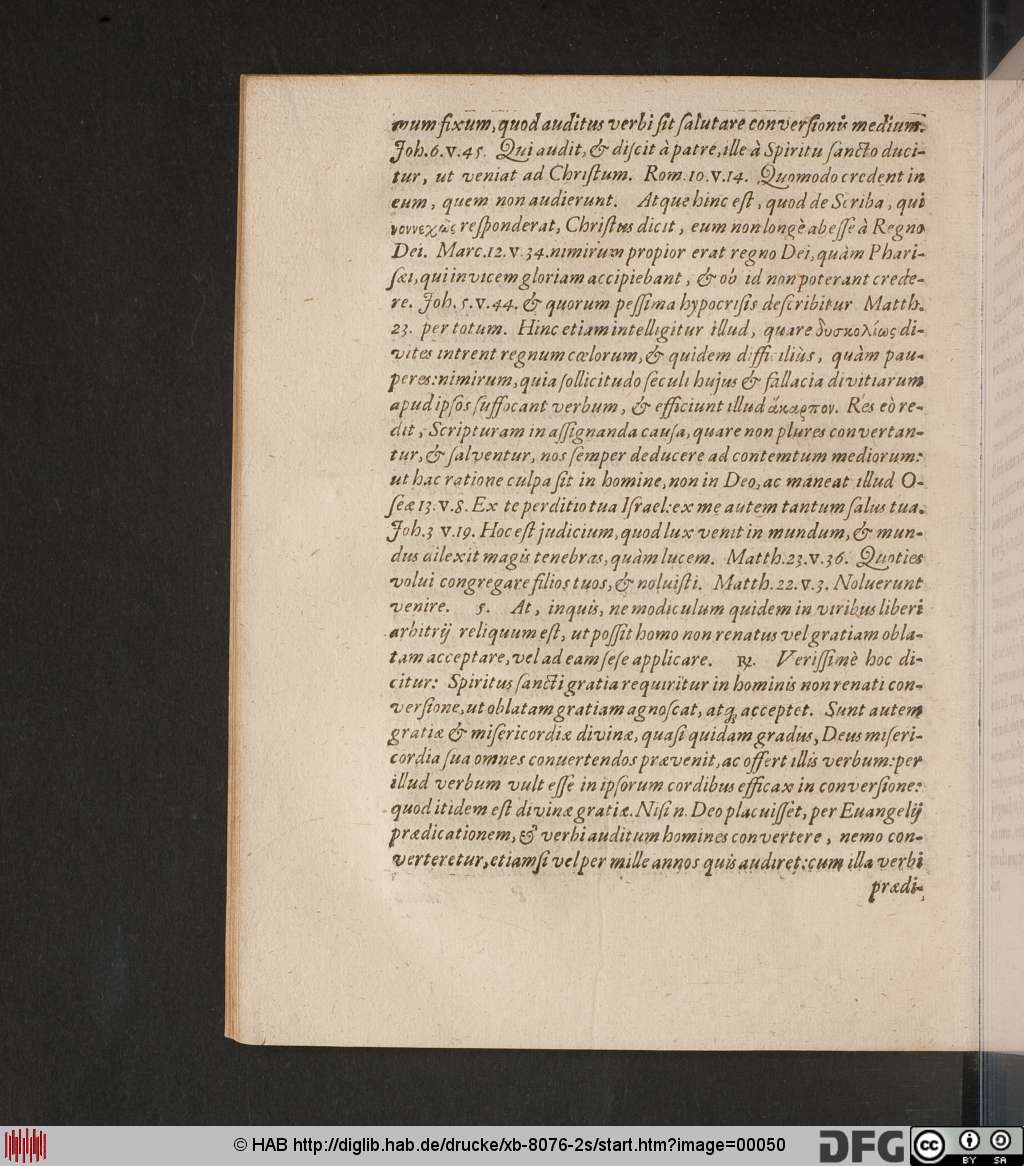 mum fixum, quod auditus verbi ſit ſalutare converſionis medium.
Joh. 6. v. 45. Qui audit, & diſcit à patre, ille à Spiritu ſancto duci-
tur, ut veniat ad Chriſtum. Rom. 10. v. 14. Quomodo credent in
eum, quem non audierunt. Atque hinc eſt, quod de Scriba, qui
νουνεχῶς reſponderat, Chriſtus dicit, eum non longè abeſſe à Regno
Dei. Marc. 12. v. 34. nimirum propior erat regno Dei, quàm Phari-
ſæi, qui invicem gloriam accipiebant, & ob id non poterant crede-
re. Joh. 5. v. 44. & quorum peſſima hypocriſis deſcribitur Matth.
23. per totum. Hinc etiam intelligitur illud, quare δυσκολίως di-
vites intrent regnum cœlorum, & quidem difficiliùs, quàm pau-
peres: nimirum, quia ſollicitudo ſeculi hujus & fallacia divitiarum
apud ipſos ſuffocant verbum, & efficiunt illud ἄκαρπον. Res eò re-
dit, Scripturam in aſſignanda cauſa, quare non plures convertan-
tur, & ſalventur, nos ſemper deducere ad contemtum mediorum:
ut hac ratione culpa ſit in homine, non in Deo, ac maneat illud O-
ſeæ 13. v. 8. Ex te perditio tua Iſrael: ex me autem tantum ſalus tua.
Joh. 3 v. 19. Hoc eſt judicium, quod lux venit in mundum, & mun-
dus dilexit magis tenebras, quàm lucem. Matth. 23. v. 36. Quoties
volui congregare filios tuos, & noluiſti. Matth. 22. v. 3. Noluerunt
venire. 5. At, inquis, ne modiculum quidem in viribus liberi
arbitrij reliquum eſt, ut poſſit homo non renatus vel gratiam obla-
tam acceptare, vel ad eam ſeſe applicare. ℞. Veriſſimè hoc di-
citur: Spiritus ſancti gratia requiritur in hominis non renati con-
verſione, ut oblatam gratiam agnoſcat, atq́; acceptet. Sunt autem
gratiæ & miſericordiæ divinæ, quaſi quidam gradus, Deus miſeri-
cordia ſua omnes convertendos prævenit, ac offert illis verbum: per
illud verbum vult eſſe in ipſorum cordibus efficax in converſione:
quod itidem eſt divinæ gratiæ. Niſi n. Deo placuiſſet, per Euangelij
prædicationem, & verbi auditum homines convertere, nemo con-
verteretur, etiamſi vel per mille annos quis audiret: cum illa verbi
prædi-
© HAB http://diglib.hab.de/drucke/xb-8076-2s/start.htm?image=00050
DFG
cc BY SA